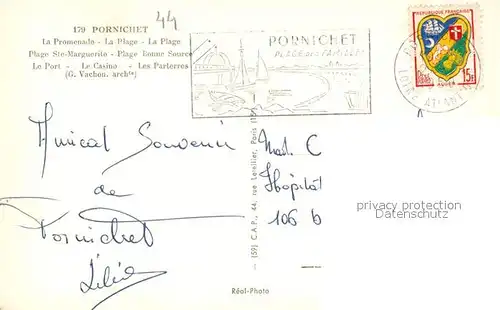 44
179 PORNICHET
La Promenade - La Plage - La Plage
Plage Ste-Marguerite - Plage Bonne Source
Le Port - Le Casino - Les Parterres
(G. Vachon, archte)
PORNICHET
PLAGE des FAMILLES
REPUBLIQUE FRANÇAISE
15F
ALGER
Amical Souvenir
de
Pornichet
(59) C.A.P., 44, rue Letellier, Paris (15e)
Hôpital
106 b
privacy protection
Datenschutz
Réal-Photo